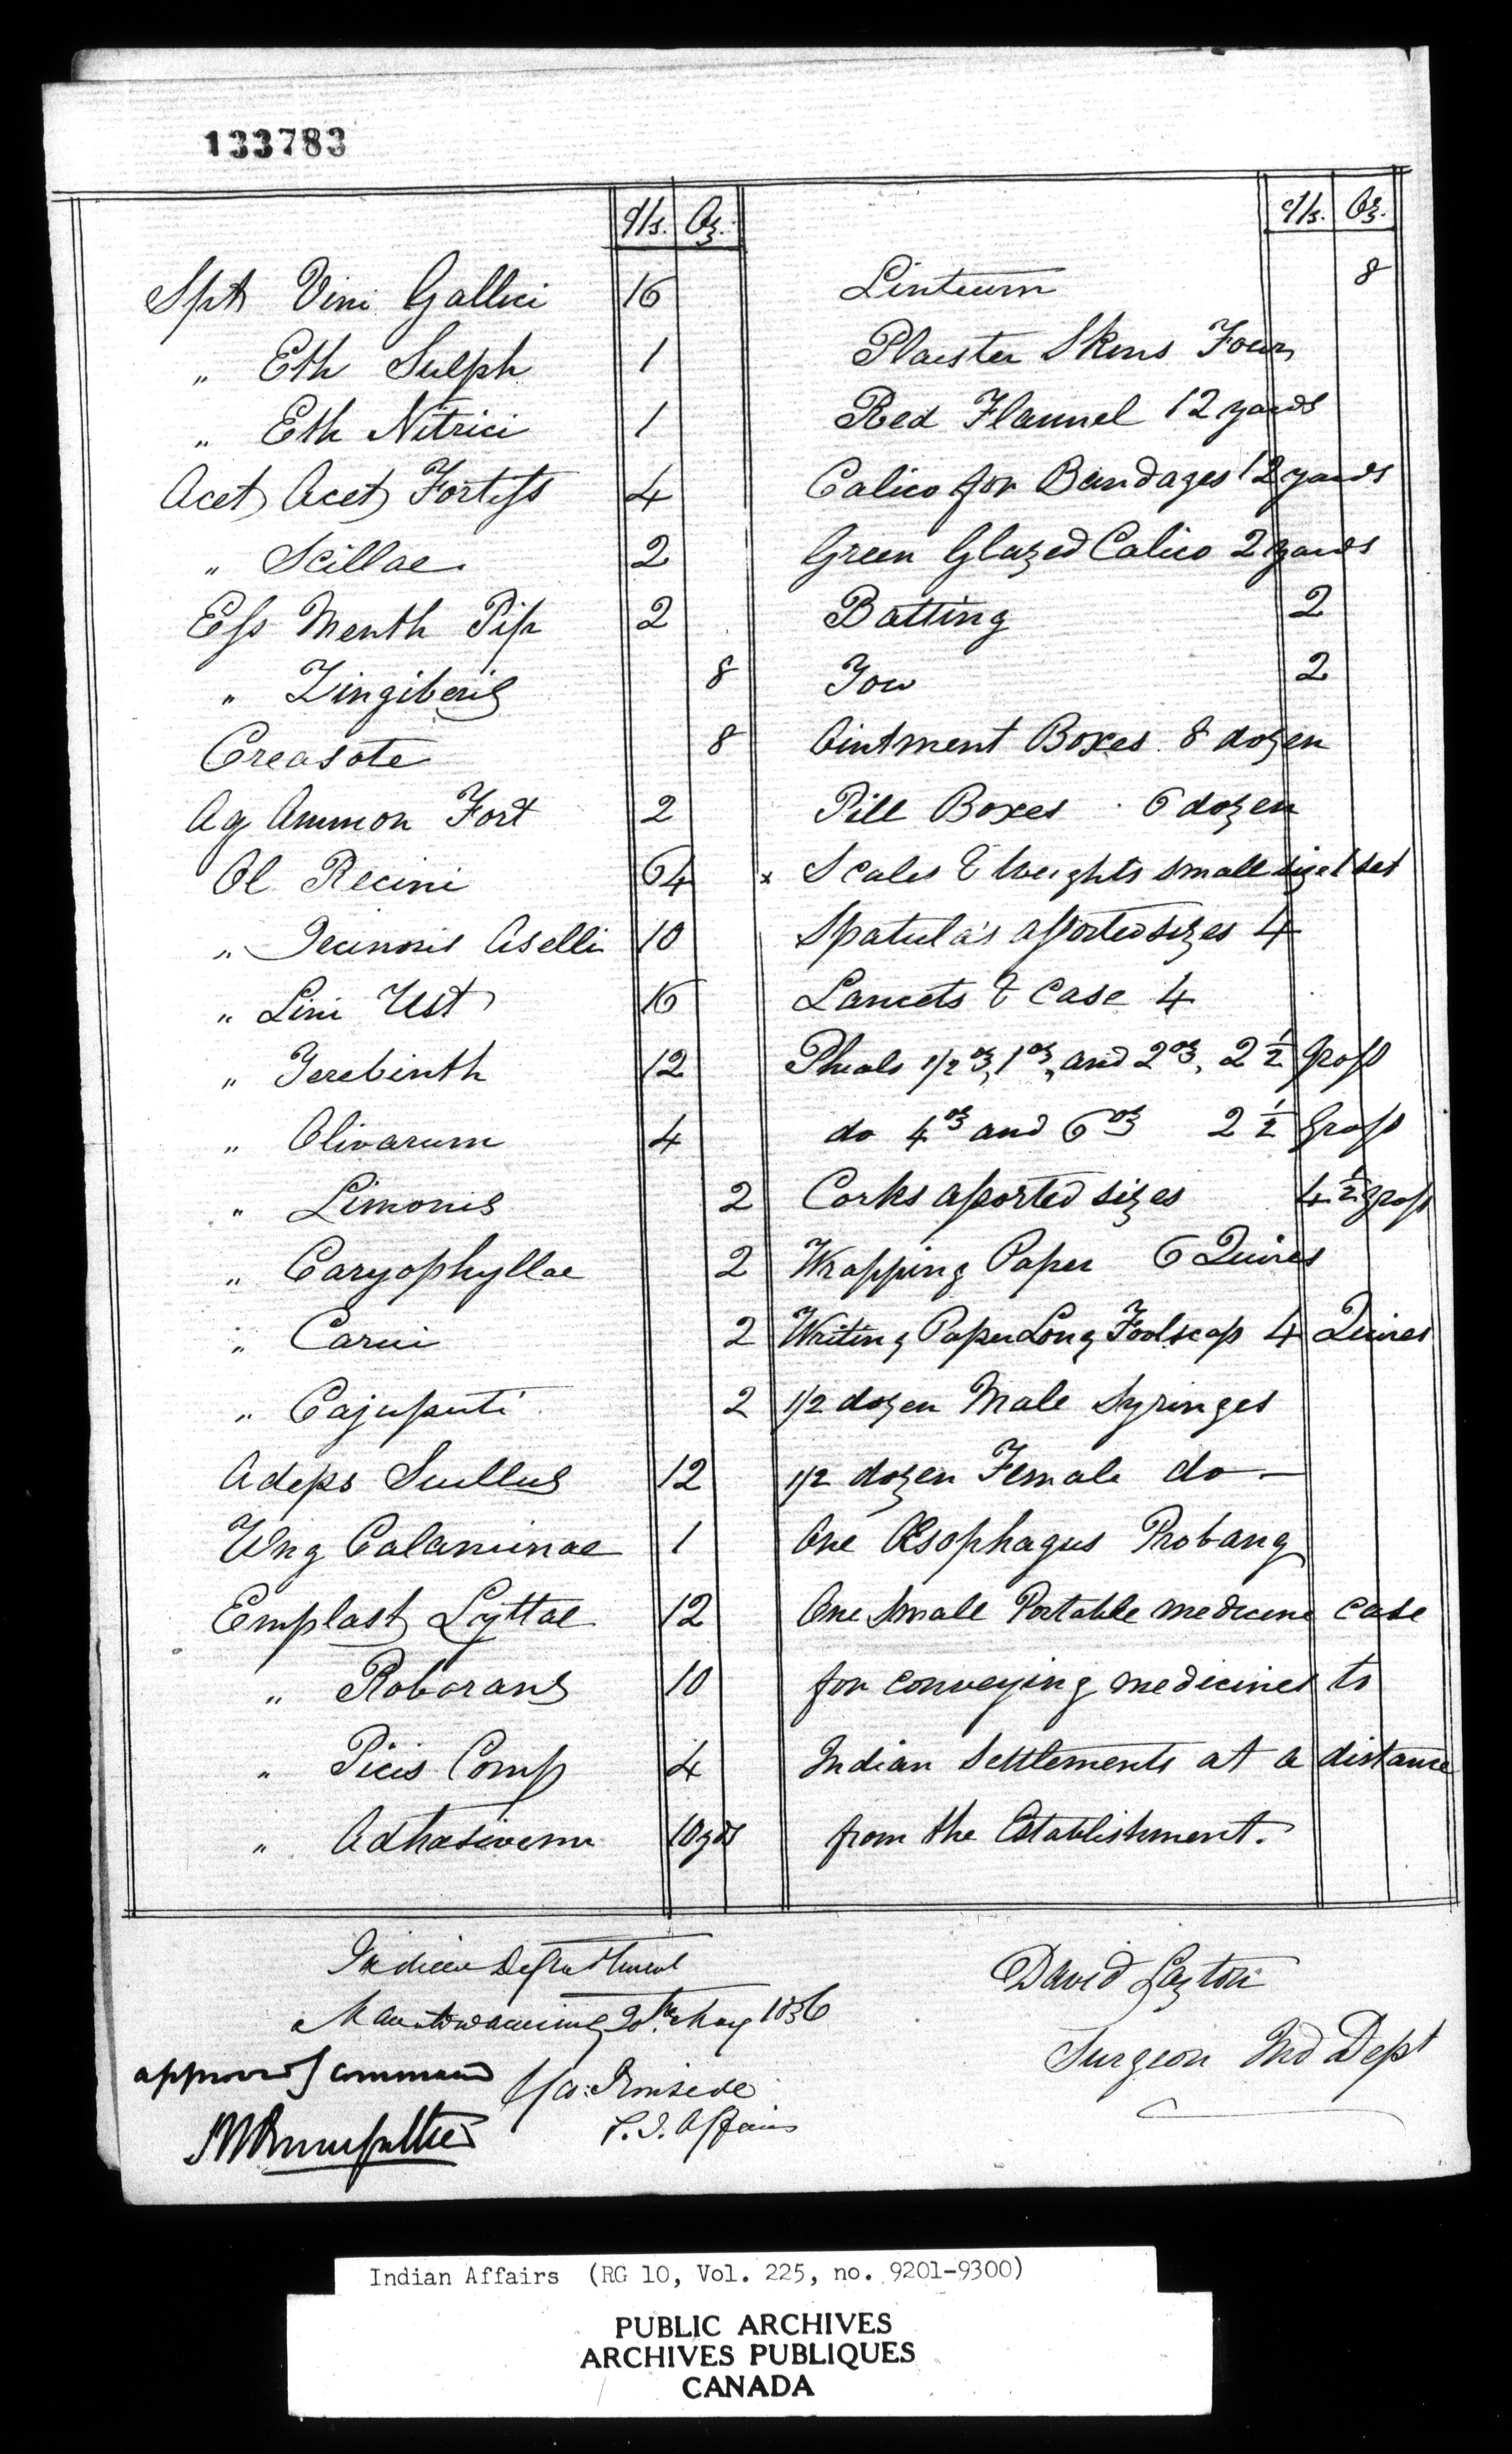 133783
lbs. Oz.
Spt Vini Gallici 16
" Eth Sulph 1
" Eth Nitrici 1
Acet Acet Fortiss 4
" Scillae 2
Ess Menth Pip 2
" Zingiberis 8
Creasote 8
Aq Ammon Fort 2
Ol Recini 64
" Jecinoris Aselli 10
" Lini Ust 16
" Terebinth 12
" Olivarum 4
" Limonis 2
" Caryophyllae 2
" Carui 2
" Cajuputi 2
Adeps Suillus 12
Ung Calaminae 1
Emplast Lyttae 12
" Roborans 10
" Picis Comp 4
" Adhasivem 10 yds
lbs. Oz.
Linteum 8
Plaister Skins Four
Red Flannel 12 yards
Calico for Bandages 12 yards
Green Glazed Calico 2 yards
Batting 2
Tow 2
Ointment Boxes 8 dozen
Pill Boxes 6 dozen
x Scales & Weights small size 1 set
Spatula's assorted sizes 4
Lancets & Case 4
Phials 1/2 oz, 1 oz, and 2 oz, 2 1/2 Gross
do 4 oz and 6 oz 2 1/2 Gross
Corks assorted sizes 4 1/2 gross
Wrapping Paper 6 Quires
Writing Paper Long Foolscap 4 Quires
1/2 dozen Male Syringes
1/2 dozen Female do —
One Œsophagus Probang
One Small Portable medicine case
for conveying medicines to
Indian Settlements at a distance
from the Establishment.
Indian Department
Manitowaning 20th May 1856
David Layton
Surgeon Ind Dept
approved command
Geo: Ironside
S. I. Affairs
Indian Affairs (RG 10, Vol. 225, no. 9201-9300)
PUBLIC ARCHIVES
ARCHIVES PUBLIQUES
CANADA